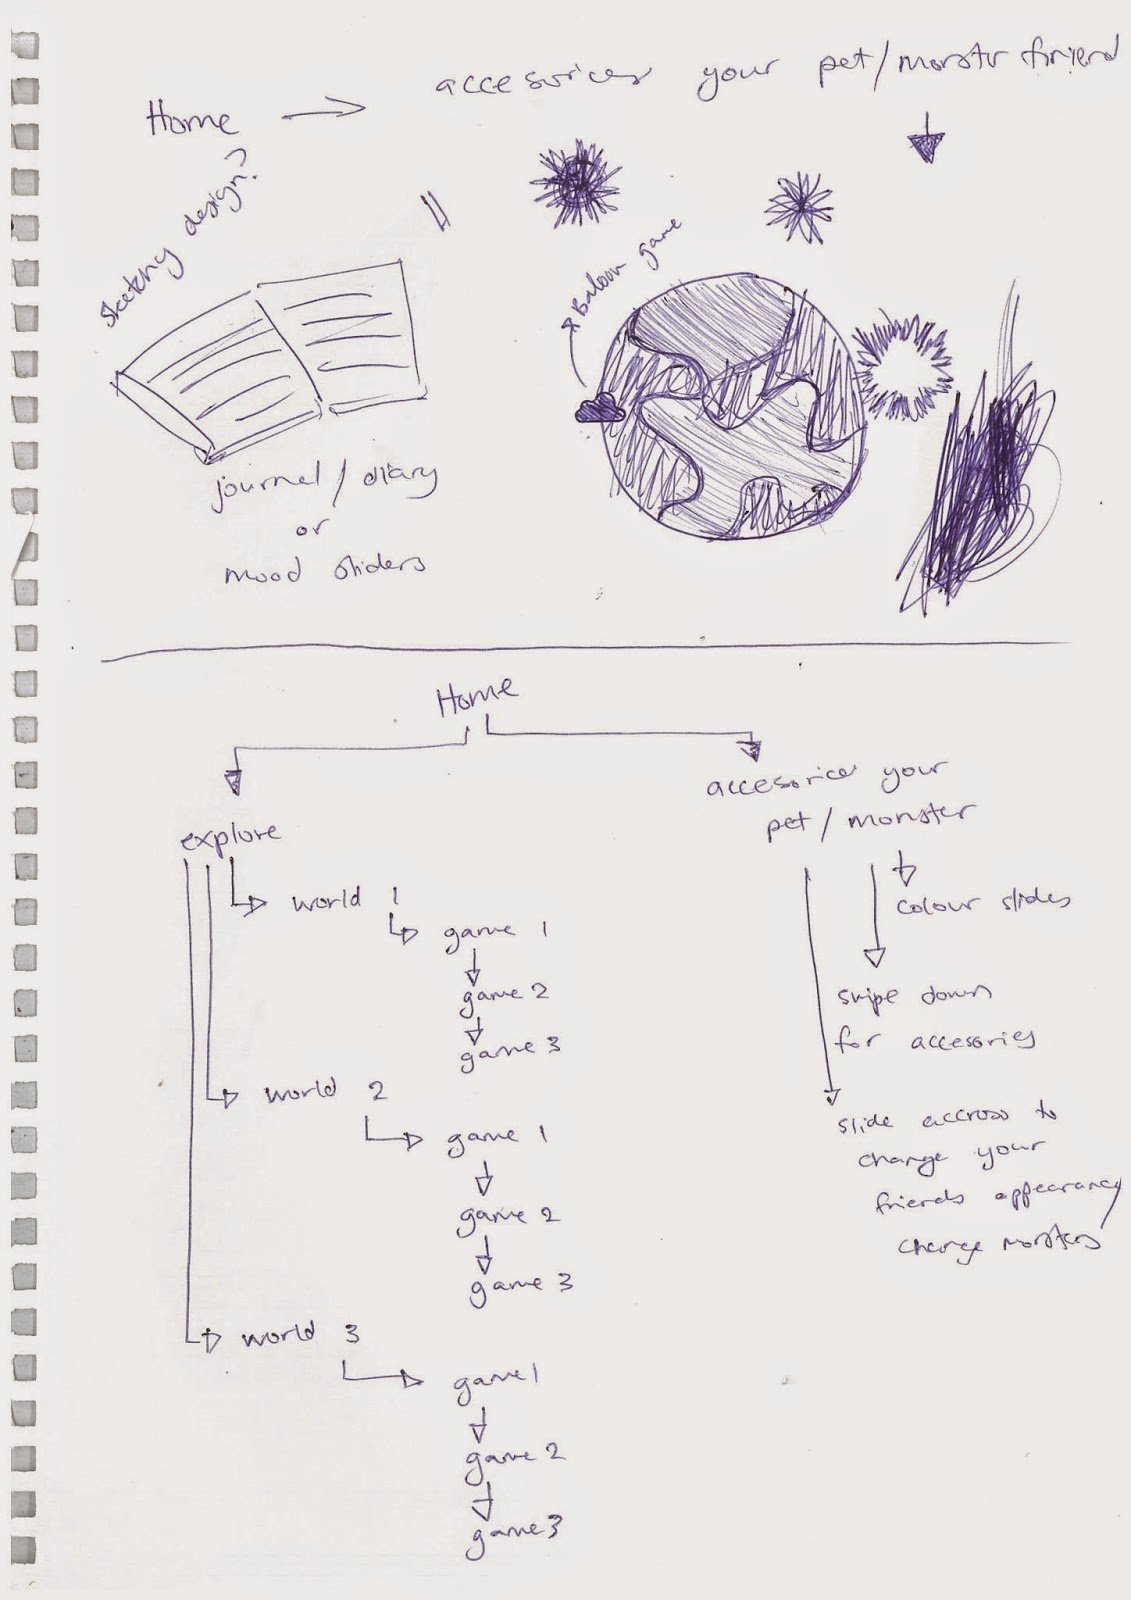 Home
accesorices your pet/monstr friend
sketchy design?
Baloon game
journal / diary
or
mood sliders
Home
explore
accesorices your
pet / monster
world 1
game 1
game 2
game 3
world 2
game 1
game 2
game 3
world 3
game 1
game 2
game 3
colour slides
swipe down
for accesories
slide accross to
change your
friends appearancy
change monsters